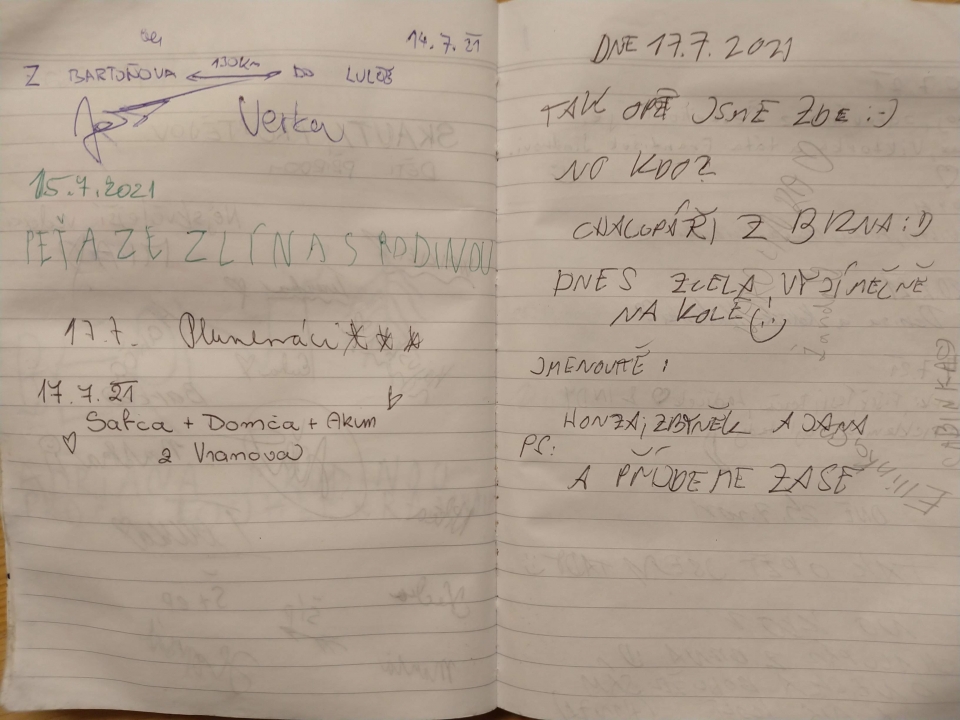 14.7.21
Z BARTOŇOVA 130km DO LULČE
Verka
15.7.2021
PEŤA ZE ZLÍNA S RODINOU
17.7. Plumenáci
17.7.21
Safča + Domča + Akum
z Vranova
DNE 17.7.2021
TAK OPĚT JSME ZDE :-)
NO KDO?
CHALOPÁŘI Z BRNA :D
DNES ZCELA VÝJÍMEČNĚ
NA KOLE (:
JMENOVITĚ :
HONZA, ZBYNĚK A DANA
PS:
A PŘÍJDEME ZASE